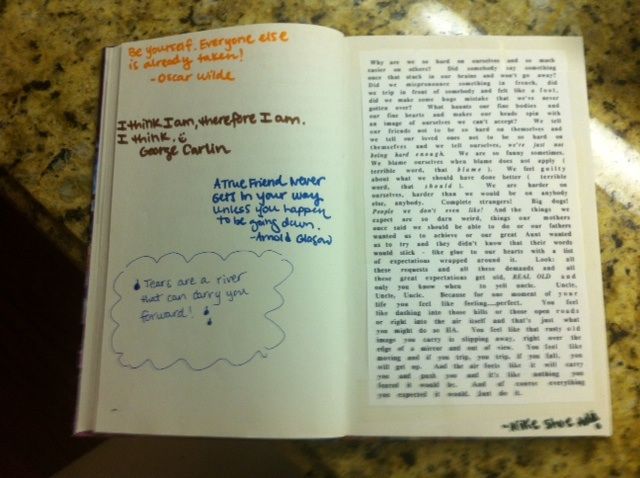 Be yourself. Everyone else
is already taken!
-Oscar Wilde
I think I am, therefore I am.
I think.
George Carlin
A True Friend Never
Gets In your Way
unless you happen
to be going down.
-Arnold Glasow
Tears are a river
that can carry you
forward!
Why are we so hard on ourselves and so much
easier on others? Did somebody say something
once that stuck in our brains and won't go away?
Did we mispronounce something in french, did
we trip in front of somebody and felt like a fool,
did we make some huge mistake that we've never
gotten over? What haunts our fine bodies and
our fine hearts and makes our heads spin with
an image of ourselves we can't accept? We tell
our friends not to be so hard on themselves and
we tell our loved ones not to be so hard on
themselves and we tell ourselves, we're just not
being hard enough. We are so funny sometimes.
We blame ourselves when blame does not apply (
terrible word, that blame ). We feel guilty
about what we should have done better ( terrible
word, that should ). We are harder on
ourselves, harder than we would be on anybody
else, anybody. Complete strangers! Big dogs!
People we don't even like! And the things we
expect are so darn weird, things our mothers
once said we should be able to do or our fathers
wanted us to achieve or our great Aunt wanted
us to try and they didn't know that their words
would stick - like glue to our hearts with a list
of expectations wrapped around it. Look: all
these requests and all these demands and all
these great expectations get old, REAL OLD and
only you know when to yell uncle. Uncle,
Uncle, Uncle. Because for one moment of your
life you feel like feeling....perfect. You feel
like dashing into those hills or those open roads
or right into the air itself and that's just what
you might do so HA. You feel like that rusty old
image you carry is slipping away, right over the
edge of a mirror and out of view. You feel like
moving and if you trip, you trip, if you fall, you
will get up. And the air feels like it will carry
you and push you and it's like nothing you
feared it would be. And of course everything
you expected it would. Just do it.
~Nike Shoe Ad